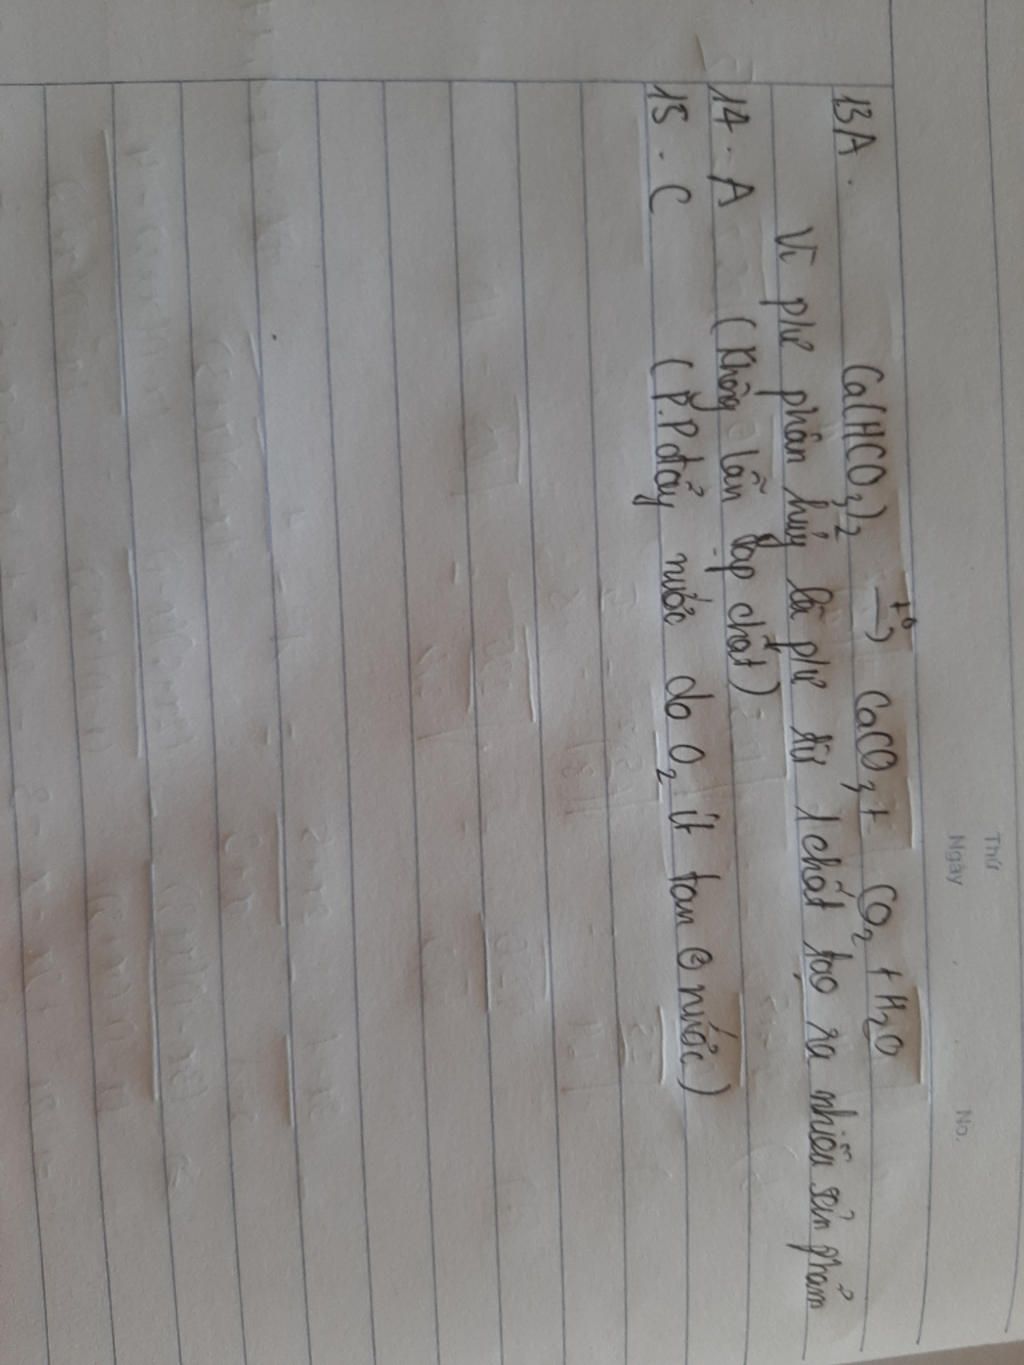 Thứ
Ngày
No.
13A. Ca(HCO3)2 —t°→ CaCO3 + CO2 + H2O
Vì pư phân hủy là pư từ 1 chất tạo ra nhiều sản phẩm
14. A (Không lẫn tạp chất)
15. C (P.P đẩy nước do O2 ít tan nước)